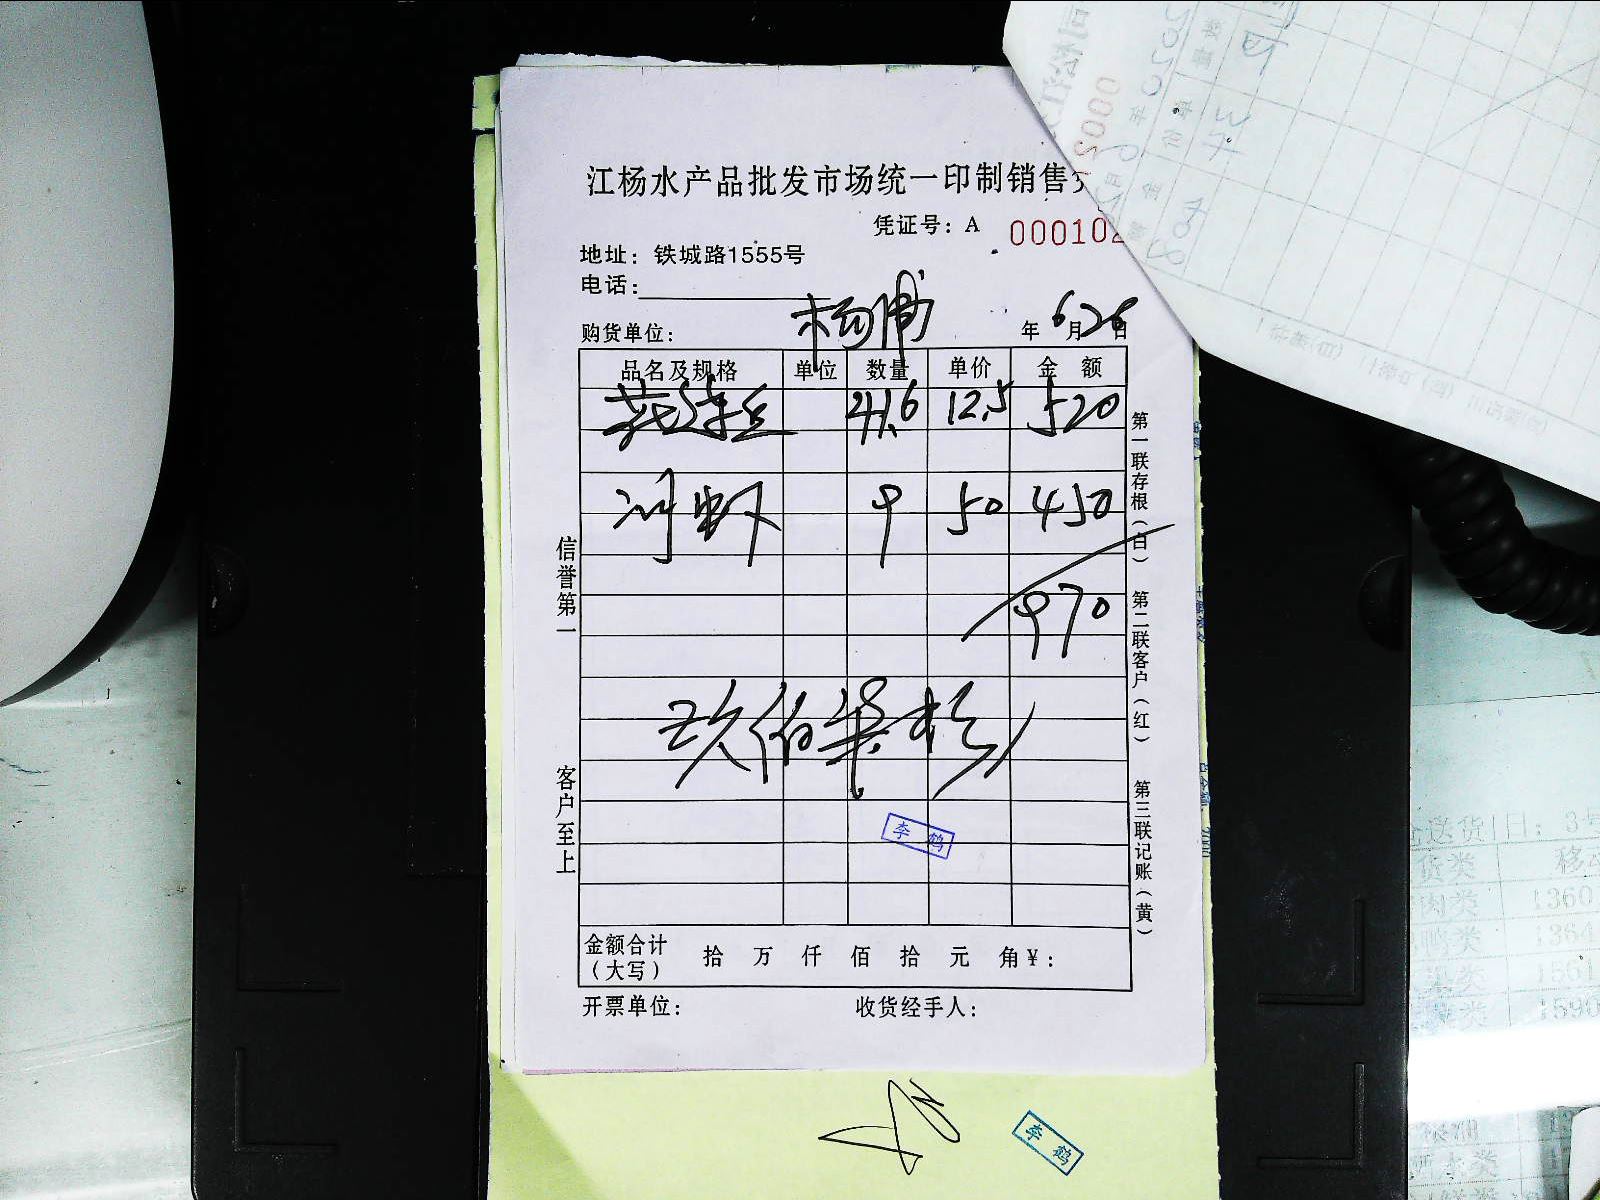 江杨水产品批发市场统一印制销售
凭证号：A 000102
地址：铁城路1555号
电话：
购货单位：杨浦 年6月26日
品名及规格 单位 数量 单价 金额
花鲢 41.6 12.5 520
河虾 9 50 450
970
玖佰柒拾
李鹤
金额合计（大写） 拾 万 仟 佰 拾 元 角¥：
开票单位： 收货经手人：
信誉第一
客户至上
第一联存根（白）
第二联客户（红）
第三联记账（黄）
李鹤
0002
送货 日：3号
货类 移
肉类 1360
鸭类 1364
1561
类 1590
水类